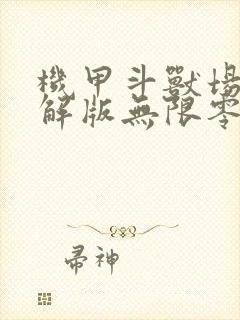 機甲斗獸場
解版無限零
帚神